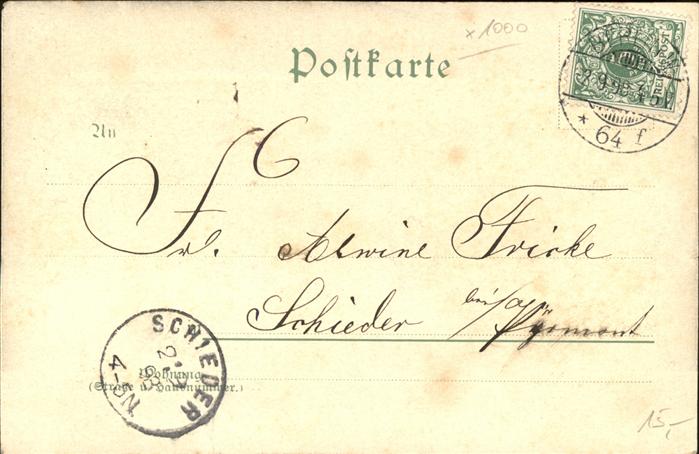 x 1000
Postkarte
BERLIN
64 f
An
Frl. Alwine Fricke
Schieder bei/ Pyrmont
SCHIEDER
4-5N
Wohnung
(Straße u. Hausnummer.)
15,-